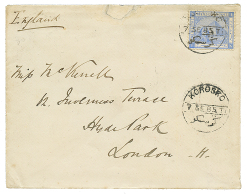 England
Miss McNeill
12. Inverness Terrace
Hyde Park
London. W.
KOROSKO
7 SE 85 T1